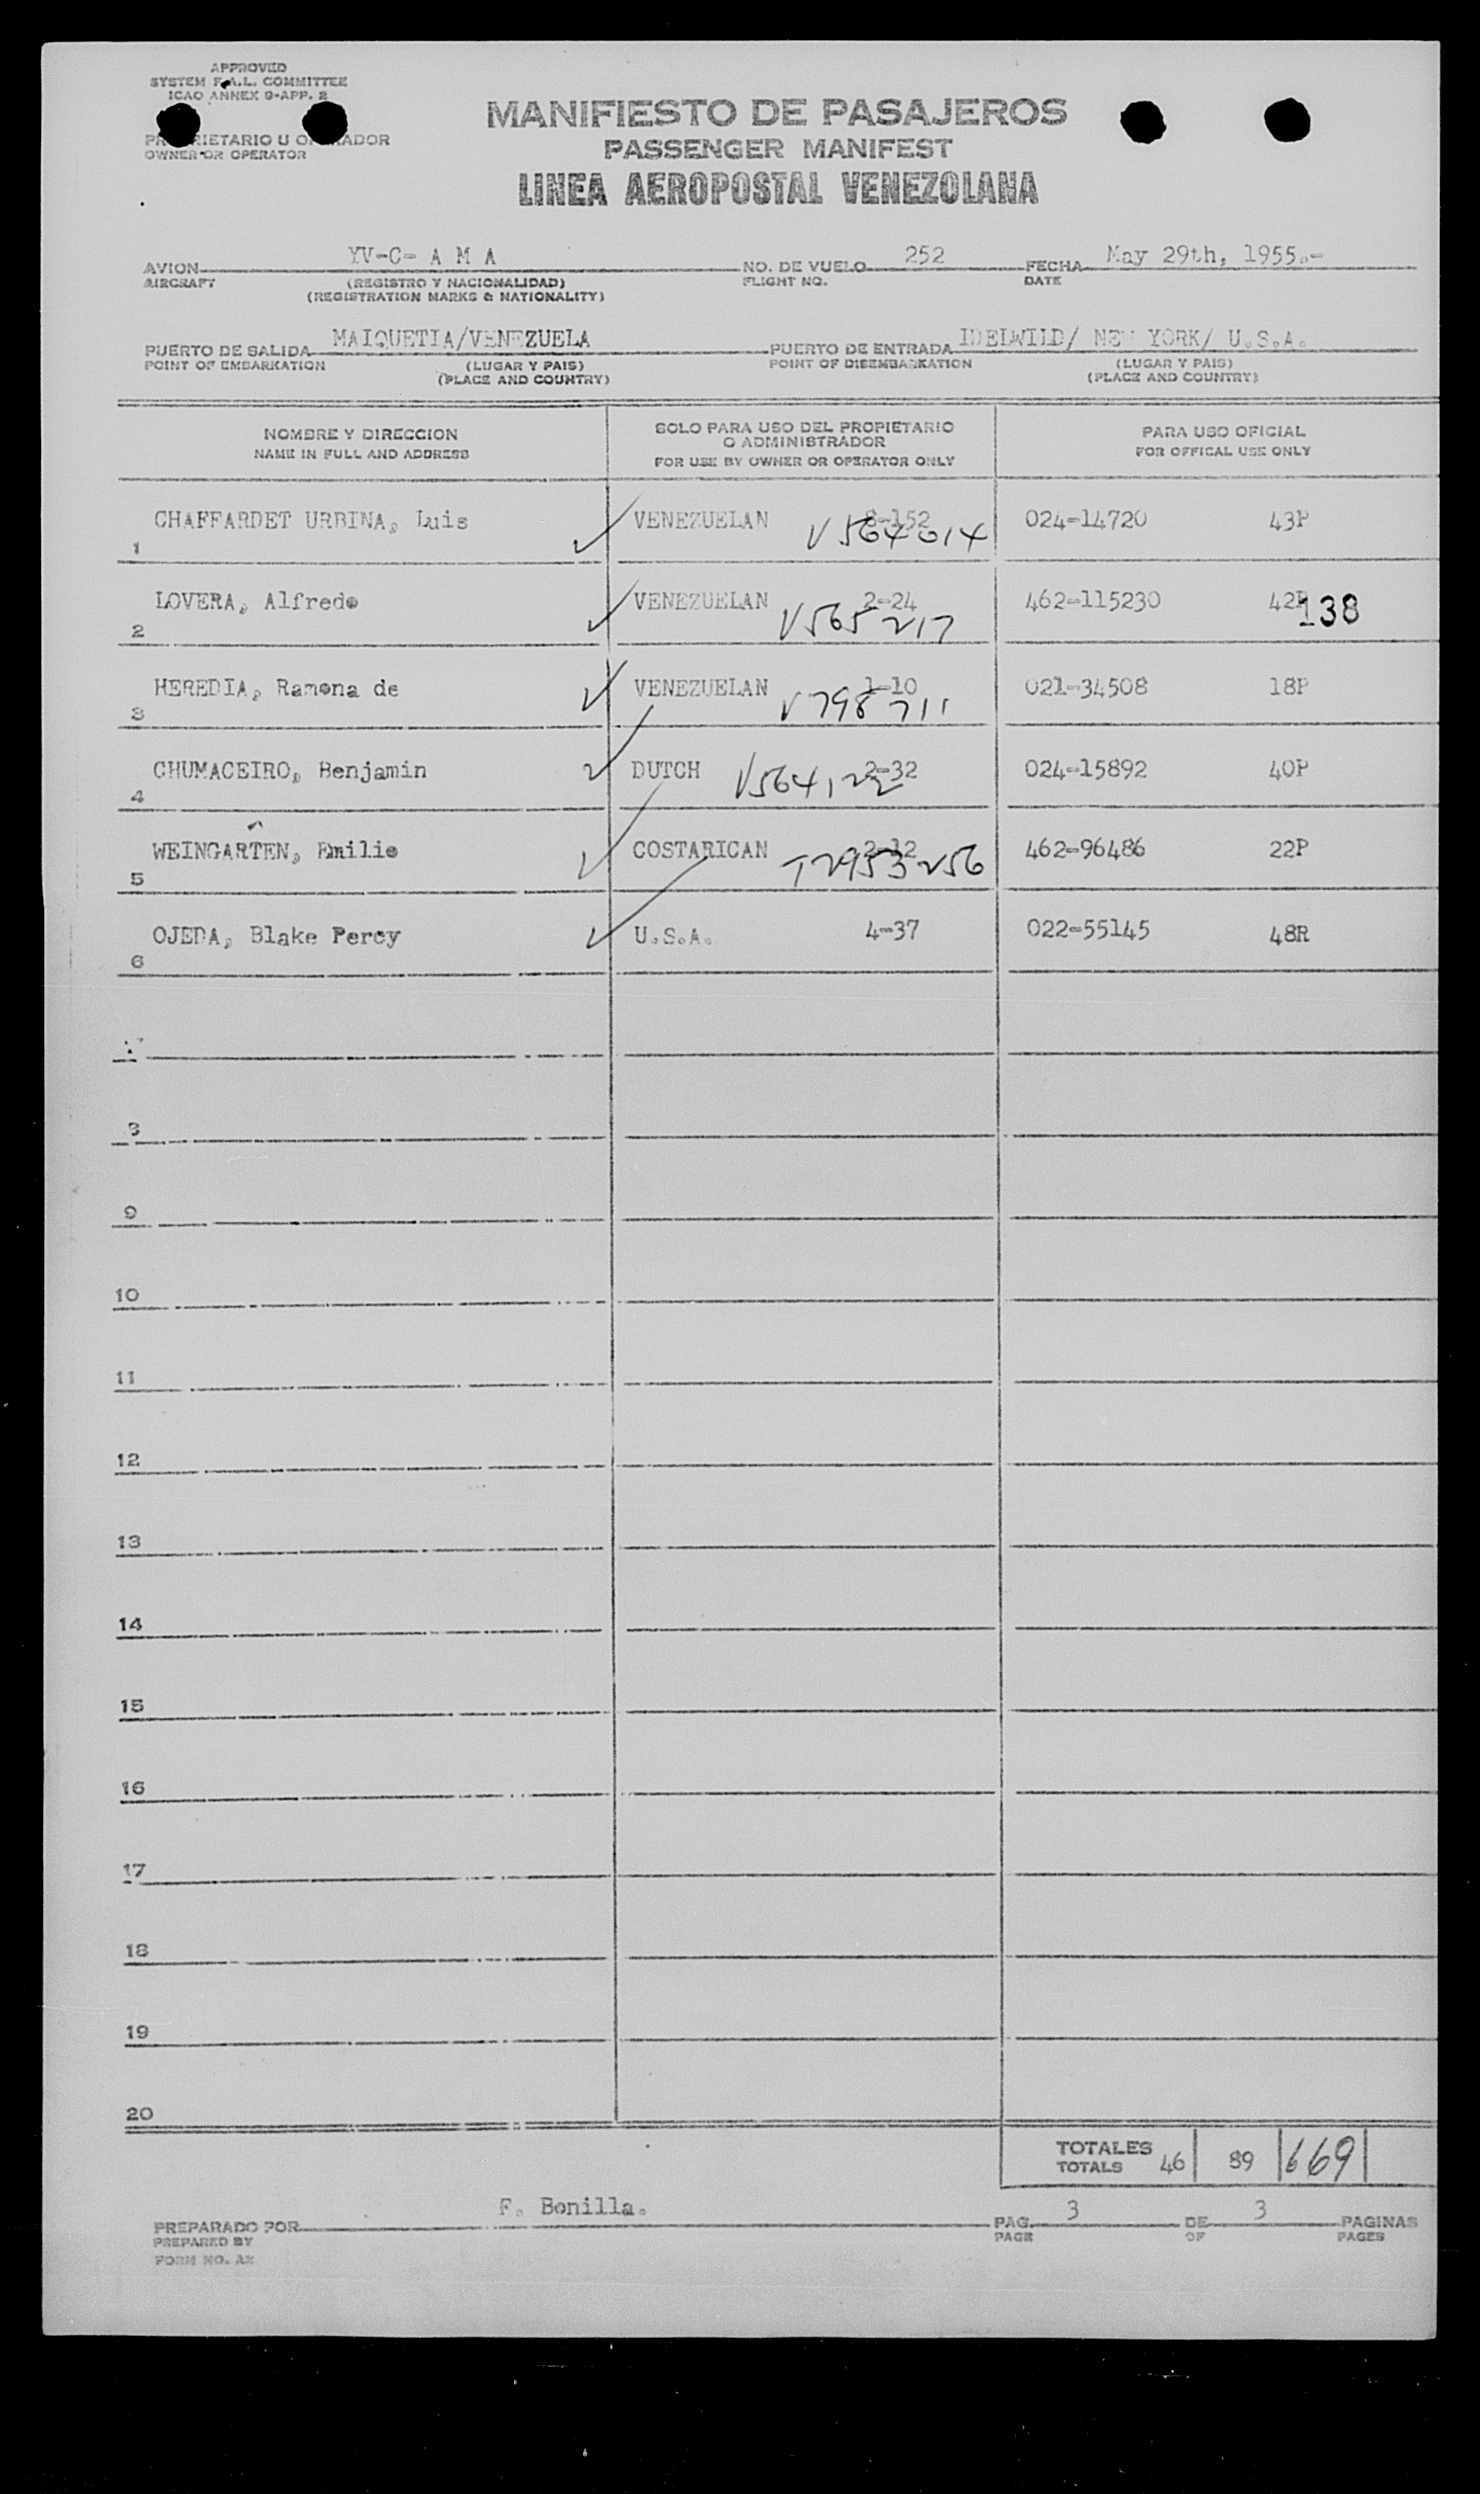 APPROVED
SYSTEM F.A.L. COMMITTEE
ICAO ANNEX 9-APP. 2
OWNER OR OPERATOR
MANIFIESTO DE PASAJEROS
PASSENGER MANIFEST
LINEA AEROPOSTAL VENEZOLANA
AVION YV-C- A M A NO. DE VUELO 252 FECHA May 29th, 1955.-
AIRCRAFT (REGISTRO Y NACIONALIDAD) FLIGHT NO. DATE
(REGISTRATION MARKS & NATIONALITY)
PUERTO DE SALIDA MAIQUETIA/VENEZUELA PUERTO DE ENTRADA IDELWILD/ NEW YORK/ U.S.A.
POINT OF EMBARKATION (LUGAR Y PAIS) POINT OF DISEMBARKATION (LUGAR Y PAIS)
(PLACE AND COUNTRY) (PLACE AND COUNTRY)
NOMBRE Y DIRECCION SOLO PARA USO DEL PROPIETARIO PARA USO OFICIAL
O ADMINISTRADOR
NAME IN FULL AND ADDRESS FOR USE BY OWNER OR OPERATOR ONLY FOR OFFICAL USE ONLY
CHAFFARDET URBINA, Luis VENEZUELAN 024-14720 43P
1 V564614
LOVERA, Alfredo VENEZUELAN 2-24 462-115230 138
2 V565217
HEREDIA, Ramona de VENEZUELAN 1-10 021-34508 18P
3 V798711
CHUMACEIRO, Benjamin DUTCH V564122 2-32 024-15892 40P
4
WEINGARTEN, Emilie COSTARICAN 2-12 462-96486 22P
5 T2953256
OJEDA, Blake Percy U.S.A. 4-37 022-55145 48R
6
8
9
10
11
12
13
14
15
16
17
18
19
20
TOTALES
TOTALS 46 89 669
PREPARADO POR F. Bonilla. PAG. 3 DE 3 PAGINAS
PREPARED BY PAGE OF PAGES
FORM NO. A2